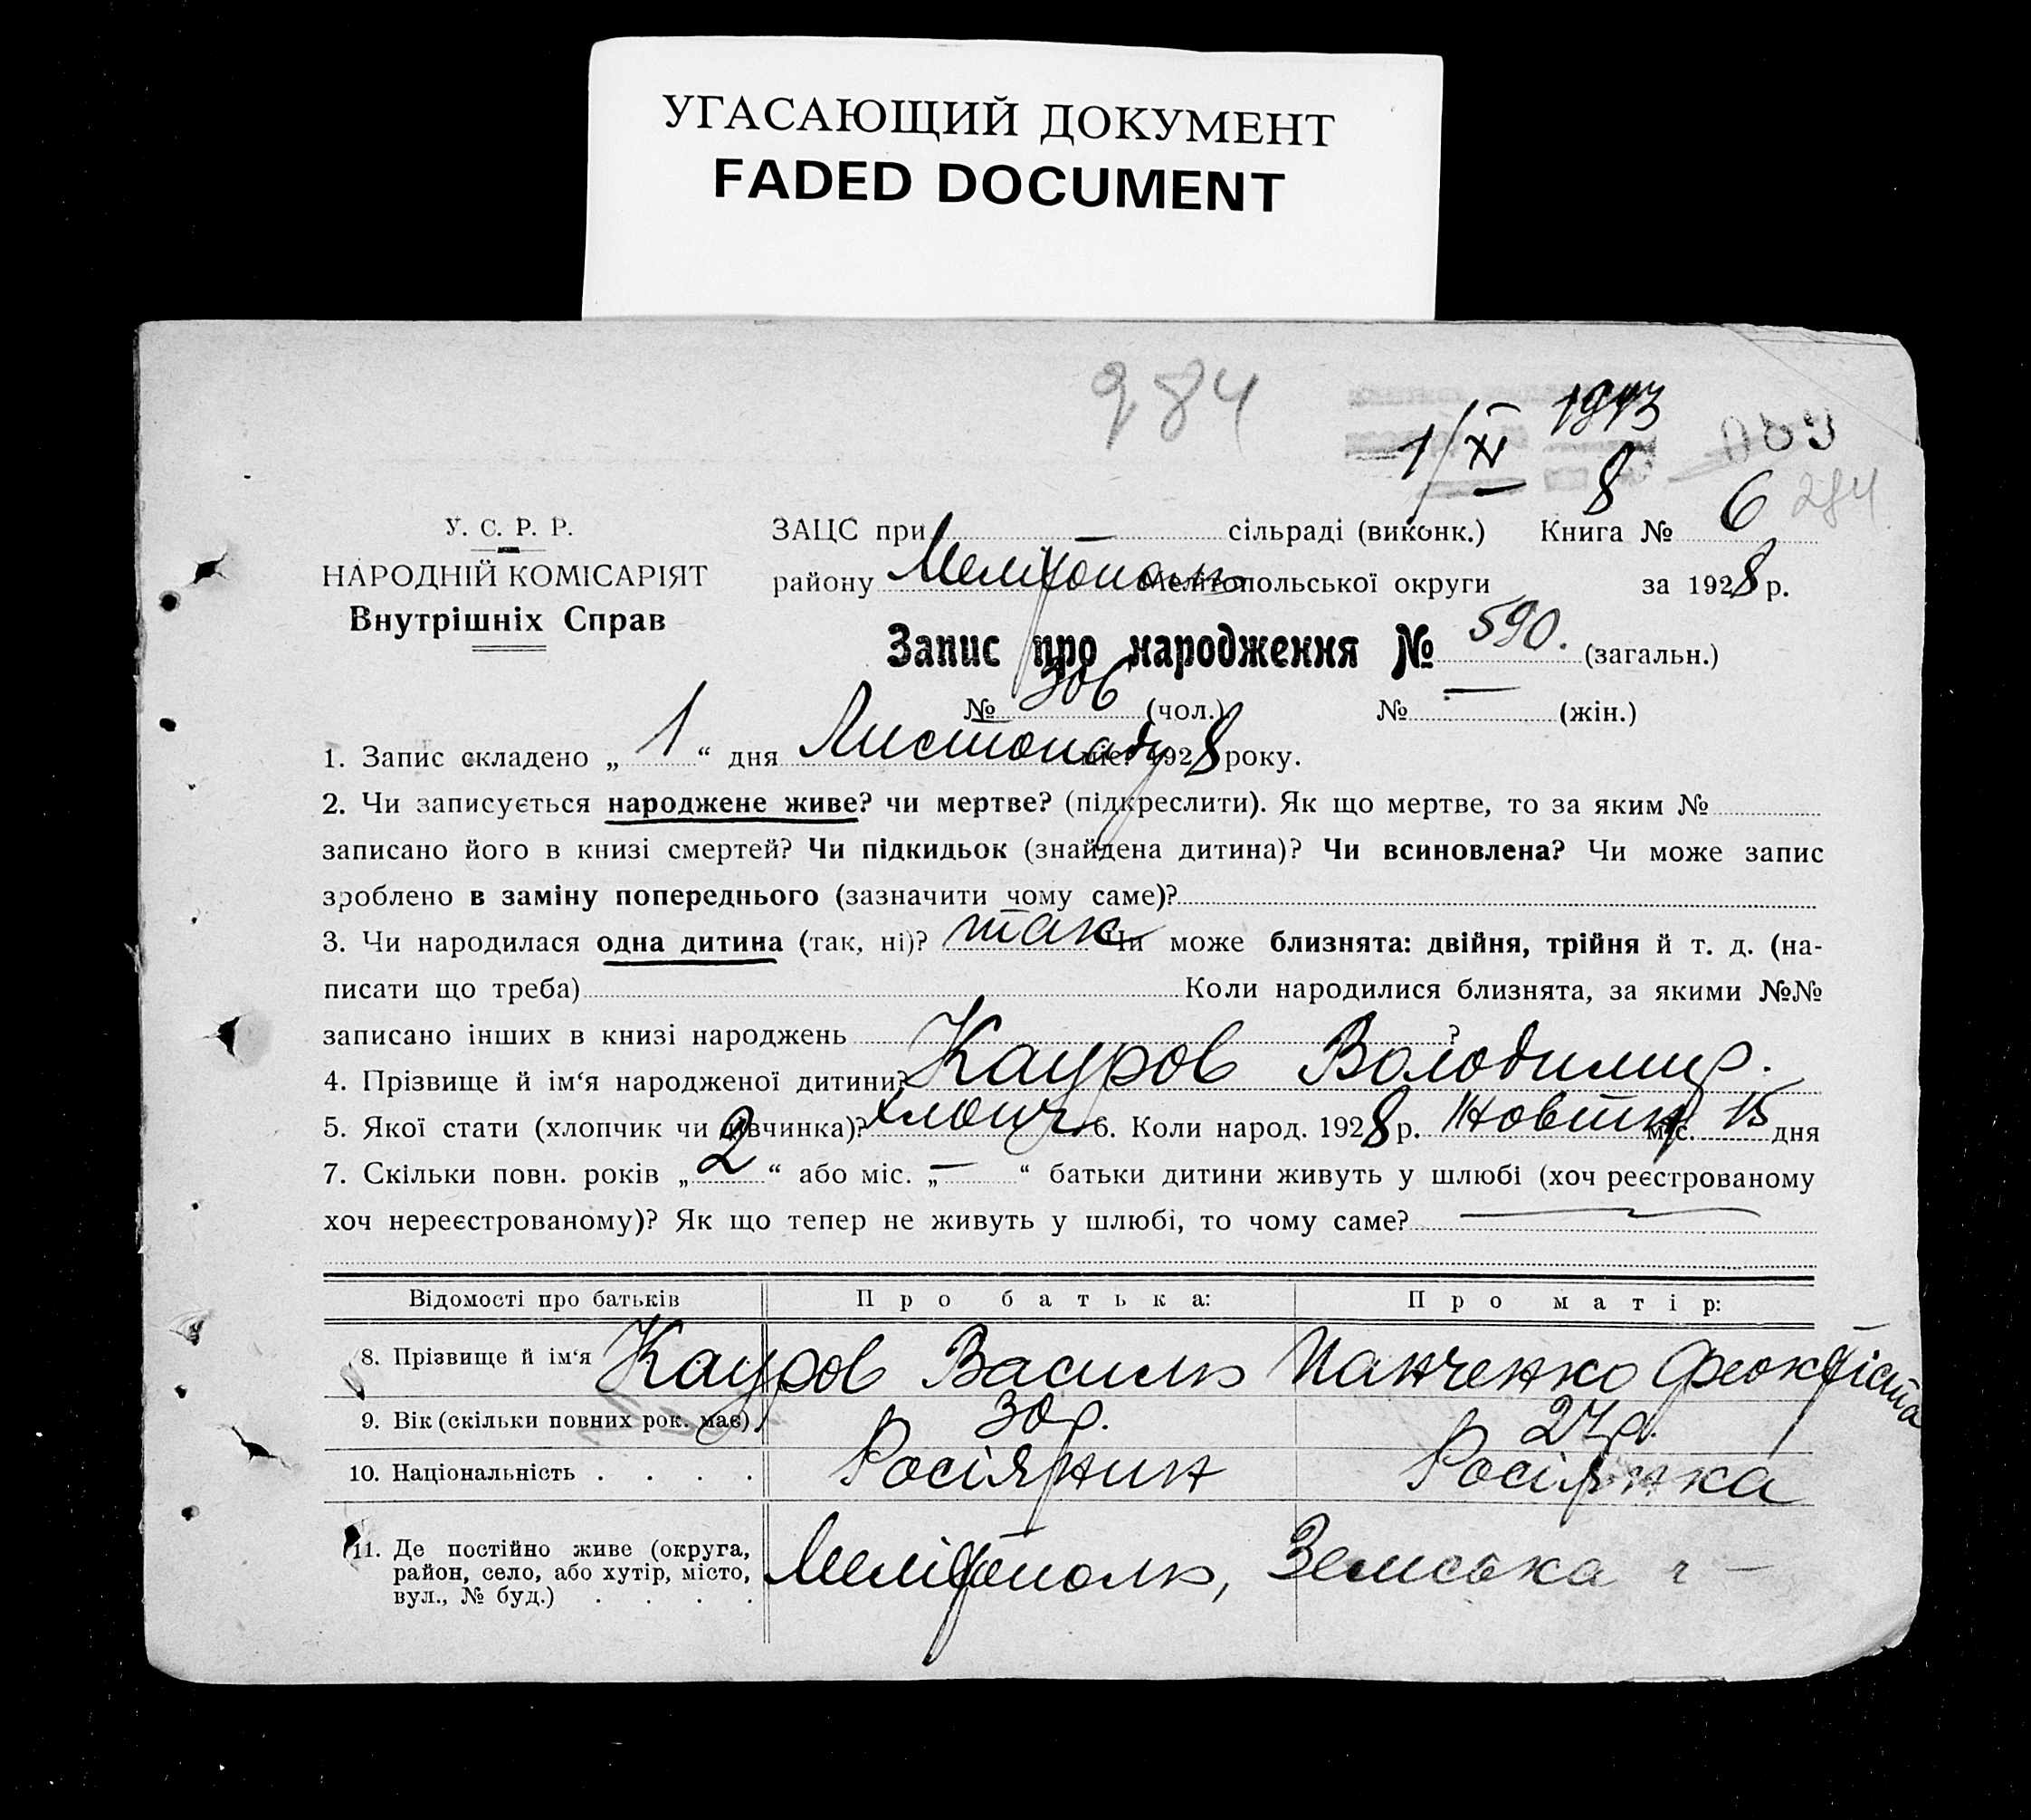 УГАСАЮЩИЙ ДОКУМЕНТ
FADED DOCUMENT
984
1/XI 1943
8
284
У. С. Р. Р.
НАРОДНІЙ КОМІСАРІЯТ
Внутрішніх Справ
ЗАЦС при — сільраді (виконк.) Книга № 6
району Мелітополь Мелітопольської округи за 1928 р.
Запис про народження № 590. (загальн.)
№ 306 (чол.) № — (жін.)
1. Запис складено „ 1 “ дня Листопаду міс. 1928 року.
2. Чи записується народжене живе? чи мертве? (підкреслити). Як що мертве, то за яким №
записано його в книзі смертей? Чи підкидьок (знайдена дитина)? Чи всиновлена? Чи може запис
зроблено в заміну попереднього (зазначити чому саме)?
3. Чи народилася одна дитина (так, ні)? так Чи може близнята: двійня, трійня й т. д. (на-
писати що треба) Коли народилися близнята, за якими №№
записано інших в книзі народжень ?
4. Прізвище й ім‘я народженої дитини? Кауров Володимир.
5. Якої стати (хлопчик чи дівчинка)? хлопч 6. Коли народ. 1928 р. Жовтн міс. 15 дня
7. Скільки повн. років „ 2 “ або міс. „ — “ батьки дитини живуть у шлюбі (хоч реєстрованому
хоч нереєстрованому)? Як що тепер не живуть у шлюбі, то чому саме? —
Відомості про батьків Про батька: Про матір:
8. Прізвище й ім‘я Кауров Василь Панченко Феоктіста
9. Вік (скільки повних рок. має) 30 р. 27 р.
10. Національність . . . . Росіянин Росіянка
11. Де постійно живе (округа,
район, село, або хутір, місто,
вул., № буд.) . . . .
Мелітополь, Земська